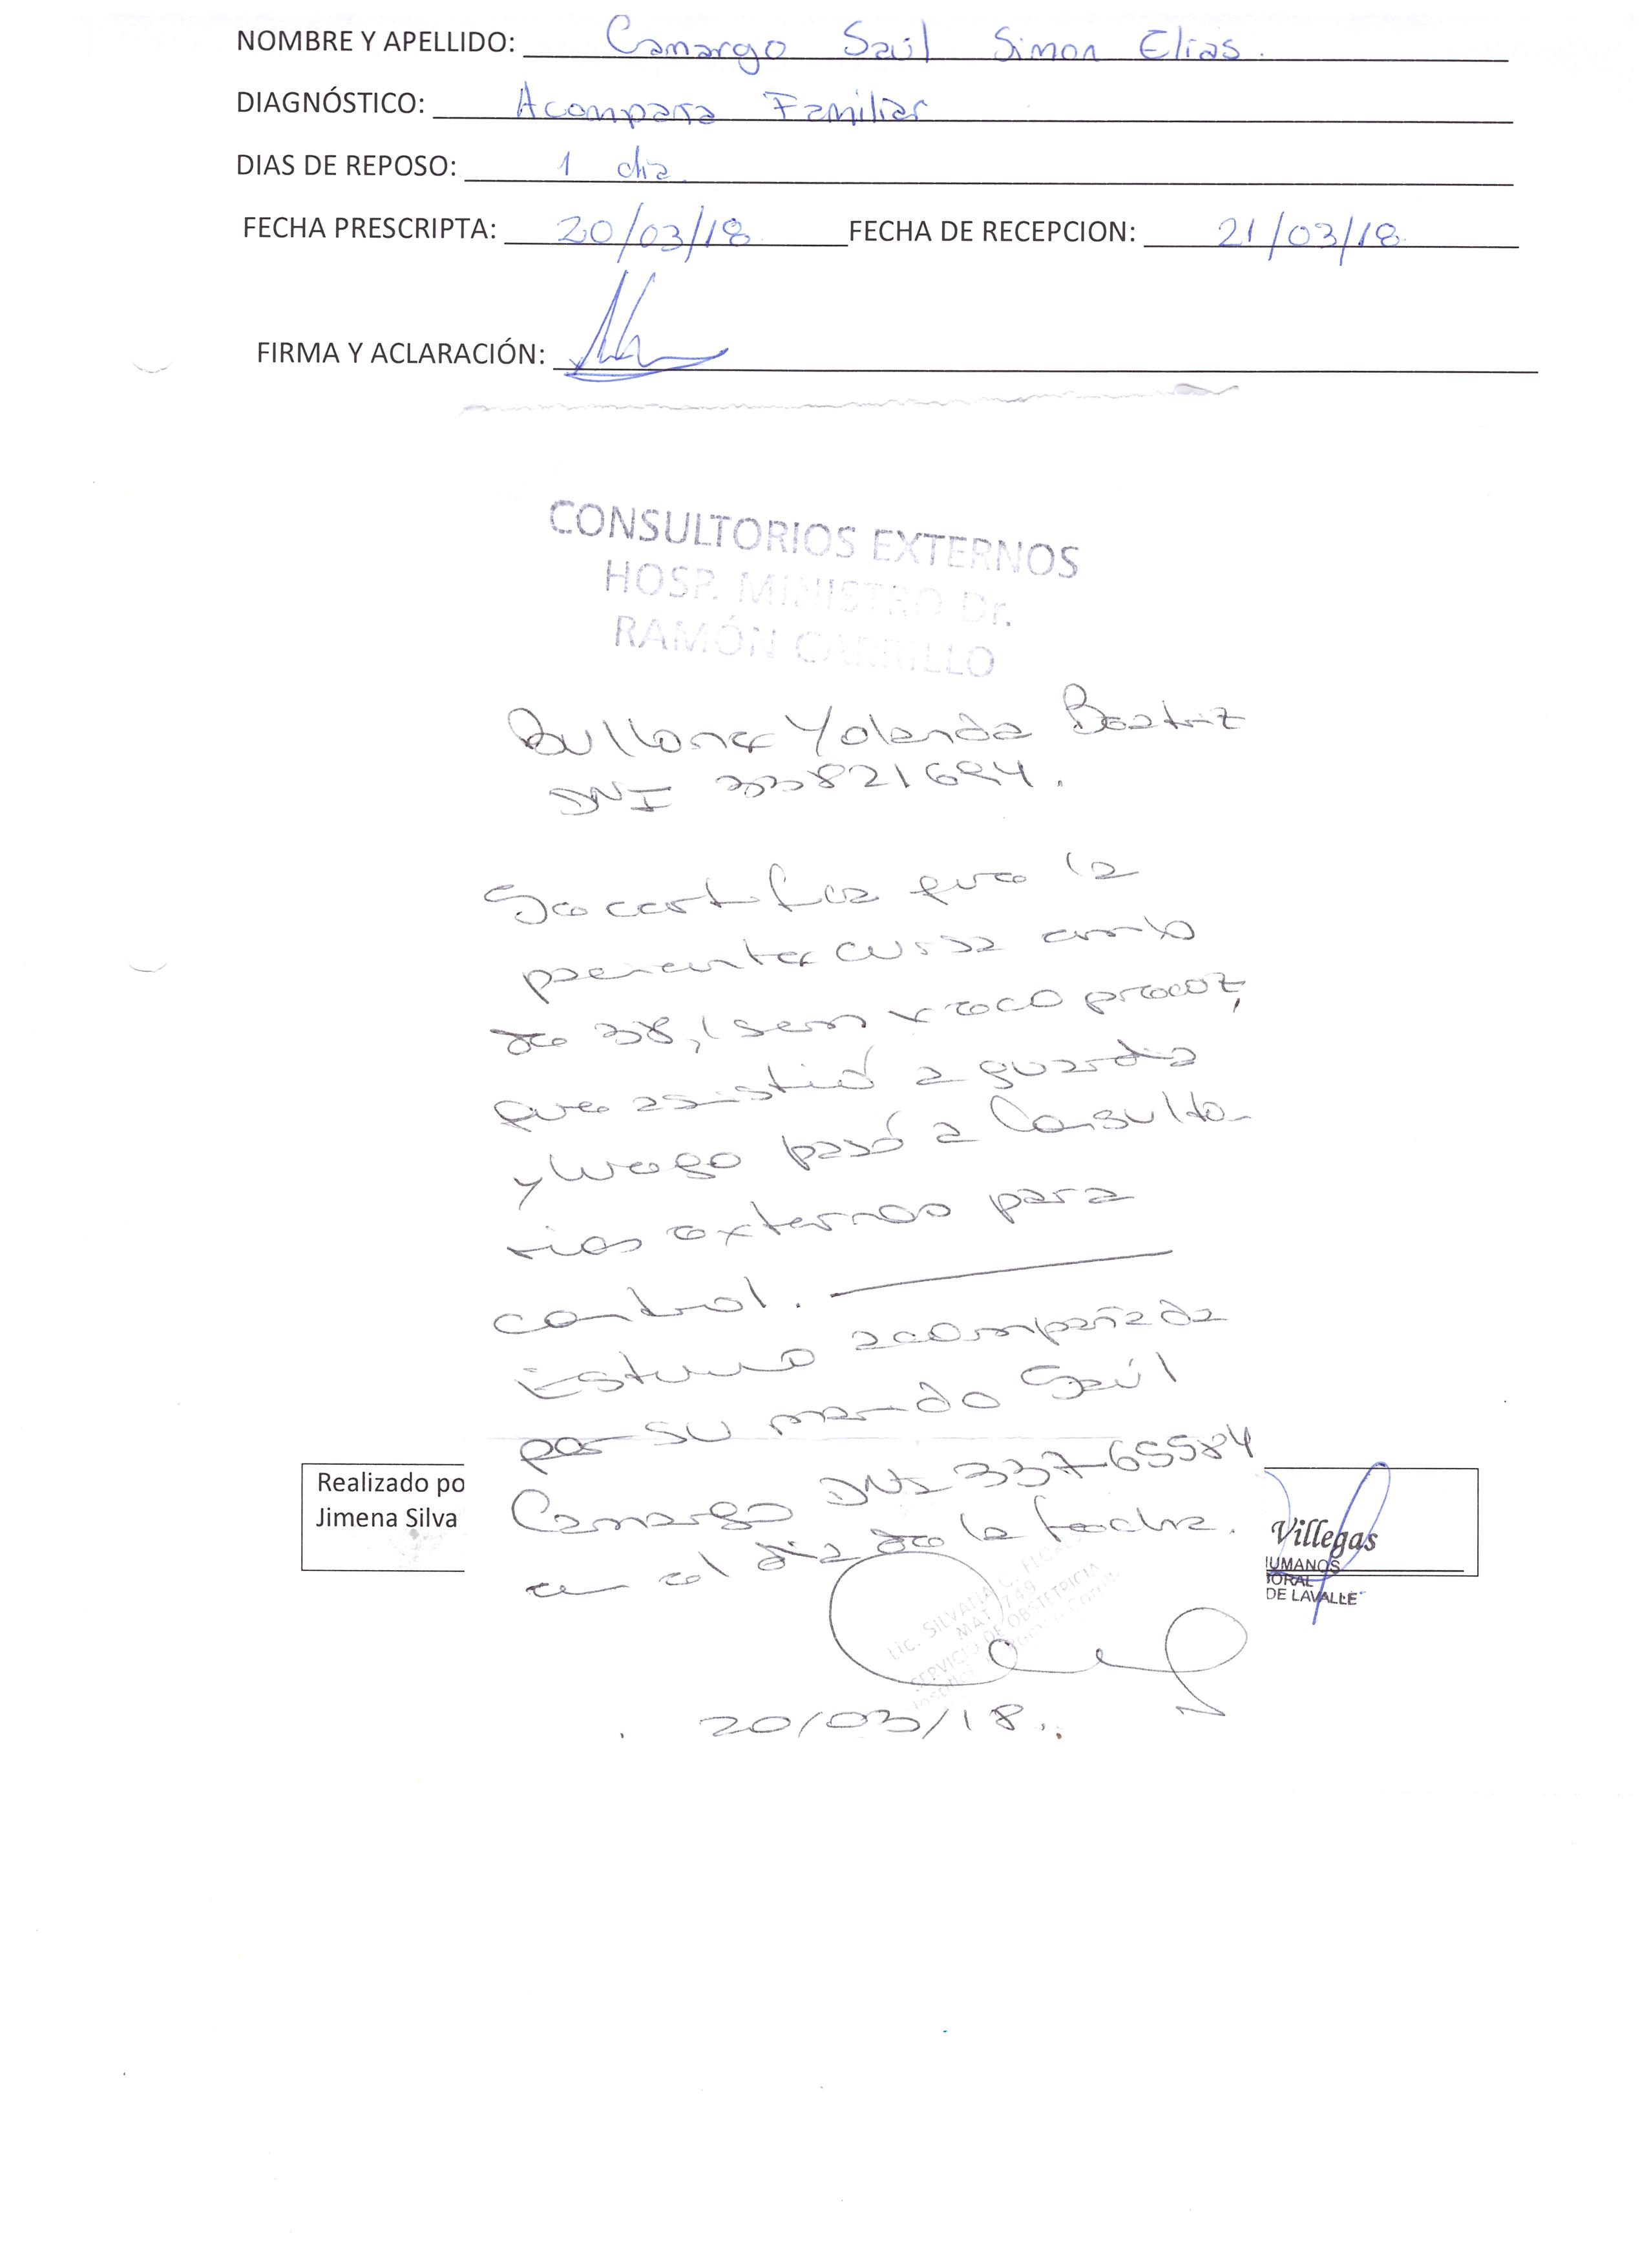 NOMBRE Y APELLIDO: Camargo Saúl Simon Elias.
DIAGNÓSTICO: Acompaña Familiar
DIAS DE REPOSO: 1 dia
FECHA PRESCRIPTA: 20/03/18 FECHA DE RECEPCION: 21/03/18
FIRMA Y ACLARACIÓN:
CONSULTORIOS EXTERNOS
HOSP. MINISTRO Dr.
RAMÓN CARRILLO
Yolanda Beatriz
DNI 33821694.
Se certifica que la
presente cursa emb
de 38,1 sem x eco precoz,
que asistió a guardia
y luego pasó a Consulto-
rios externos para
control.
Estuvo acompañada
por su marido Saúl
Camargo DNI 33765584
en el día de la fecha.
Realizado po
Jimena Silva
Villegas
UMANOS
ORAL
DE LAVALLE
LIC. SILVANA
MAT 749
SERVICIO DE OBSTETRICIA
20/03/18.